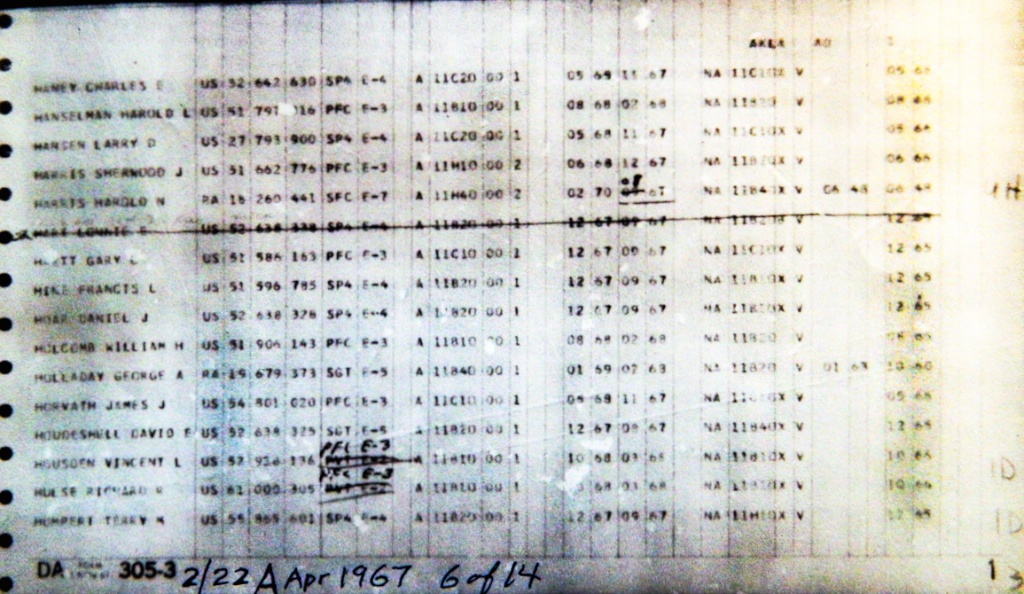 AKLA AO
HANEY CHARLES E US 52 642 630 SP4 E-4 A 11C20 00 1 05 69 11 67 NA 11C1OX V 05 66
HANSELMAN HAROLD L US 51 797 316 PFC E-3 A 11B10 00 1 08 68 02 68 NA 11B20 V 08 65
HANSEN LARRY D US 27 793 900 SP4 E-4 A 11C20 00 1 05 68 11 67 NA 11C1OX V 05 66
HARRIS SHERWOOD J US 51 662 776 PFC E-3 A 11H10 00 2 06 68 12 67 NA V 06 66
08
HARRIS HAROLD N RA 16 260 441 SFC E-7 A 11H40 00 2 02 70 67 NA 11B4OX V 06 48 06 48 1H
US 52 638 338 SP4 E-4 A 11B20 00 1 12 67 09 67 NA V 12
GARY US 51 586 163 PFC E-3 A 11C10 00 1 12 67 09 67 NA 11C1OX V 12 65
FRANCIS L US 51 596 785 SP4 E-4 A 11B20 00 1 12 67 09 67 NA 11B1OX V 12 65
HOAR DANIEL J US 52 638 328 SP4 E-4 A 11B20 00 1 12 67 09 67 NA V 12 65
HOLCOMB WILLIAM H US 51 904 143 PFC E-3 A 11B10 00 1 08 68 02 68 NA 11B20 V 08 65
HOLLADAY GEORGE A RA 19 679 373 SGT E-5 A 11B40 00 1 01 69 07 68 NA 11B20 V 01 63 10 60
HORVATH JAMES J US 54 801 020 PFC E-3 A 11C10 00 1 05 68 11 67 NA V 05 66
HOUDESHELL DAVID E US 52 638 325 SGT E-5 A 11B20 00 1 12 67 08 67 NA 11B4OX V 12 65
PFC E-3
HOUSDEN VINCENT L US 52 936 136 A 11B10 00 1 10 68 03 68 NA 11B1OX V 10 66 1D
PFC E-3
HULSE RICHARD R US 61 000 305 A 11B10 00 1 68 03 68 NA V 10 66
HUMPERT TERRY M US 55 865 601 SP4 E-4 A 11B20 00 1 12 67 09 67 NA 11H1OX V 12 65 1D
DA FORM 305-3 2/22 A Apr 1967 6 of 14 1 3